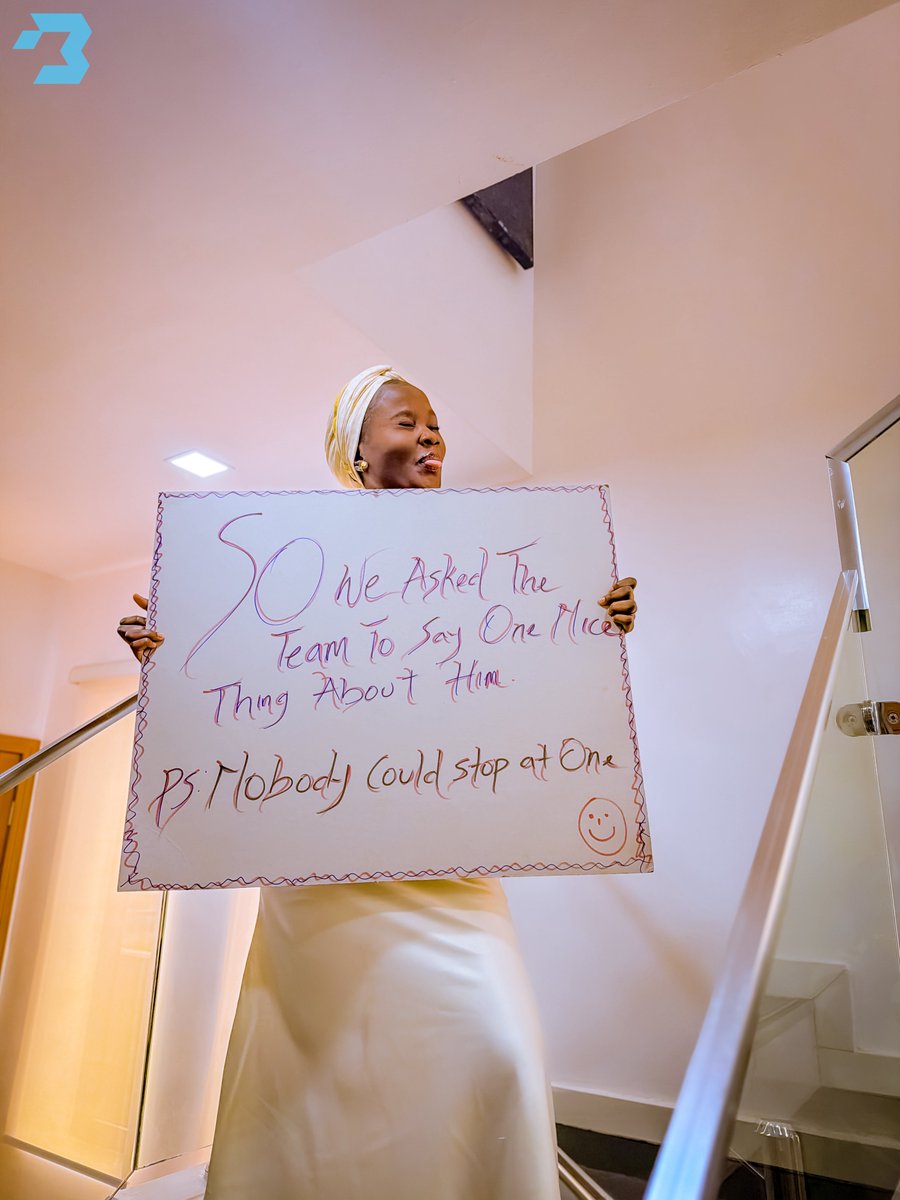 SO We Asked The
Team To Say One Nice
Thing About Him.
PS: Nobody Could stop at One